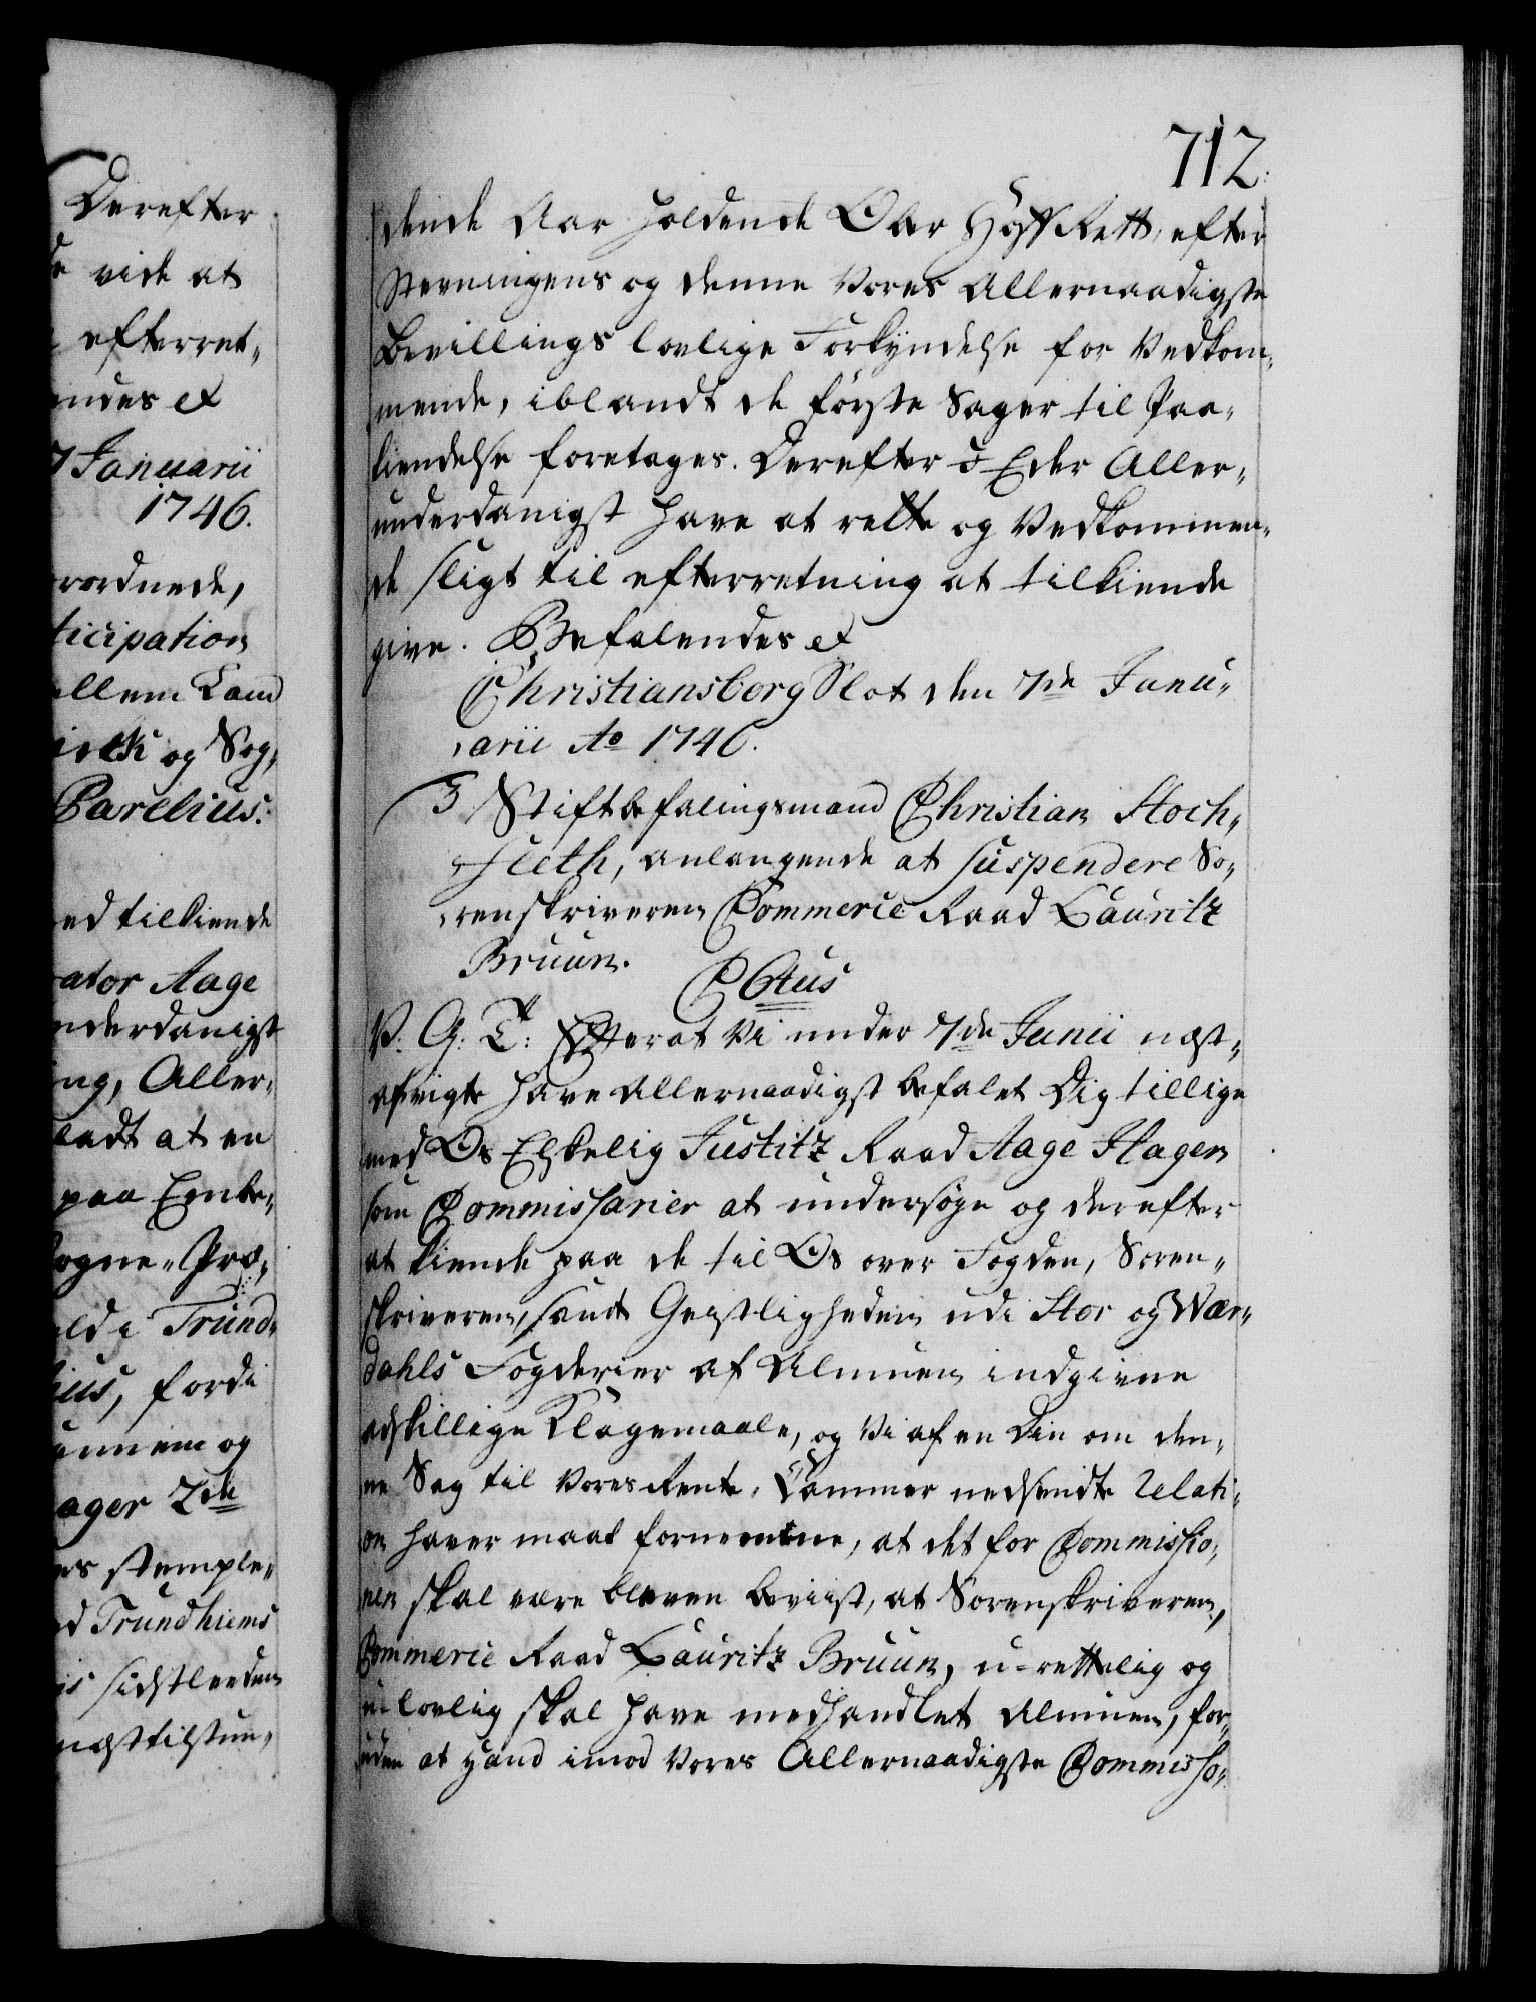 Derefter
vide at
efterret„
endes et
7 Januarii
1746.
rordnede,
ticipation
ellem Land
irck og Sog„
Parelius.
ed tilkiende
rator Aage
nderdanigst
ing, Aller„
ladt at en
paa Embe„
ogne„ Præ„
eld i Trund„
lius, fordi
annem og
ager 2de
es stemple„
d Trundhiems
is sidstleeden
næsttilstun„
712.
dende Aar holdende Ober Hoff Rett, efter
Stevningens og denne Vores Allernaadigste
Bevillings lovlige Forkyndelse for Vedkom„
mende, iblandt de første Sager til Paa„
kiendelse foretages. Derefter I Eder Aller„
underdanigst have at rette og Vedkommen„
de sligt til efterretning at tilkiende
give. Befalendes et
Christiansborg Slot den 7de Janu„
„arii Ao 1746.
3 Stiftbefalingsmand Christian Stoch„
„fleth, anlangende at suspendere So„
„renskriveren Commerce Raad Lauritz
Bruun.
C6tus
V. G. T: Efterat Vi under 7de Junii næst„
afvigte have Allernaadigst befalet Dig tillige
med Os Elskelig Justitz Raad Aage Hagen
som Commissarier at undersøge og derefter
at kiende paa de til Os over Fogden, Soren„
skriveren, samt Geistligheden udi Stor og Wær„
dahls Fogderier af Almuen indgivne
adskillige Klagemaale, og Vi af en Din om den„
ne Sag til Vores Rente„Cammer nedsendte Relati„
on haver maat fornemme, at det for Commissio„
nen skal være bleven beviist, at Sorenskriveren,
Commerce Raad Lauritz Bruun, u-rettelig og
u-lovlig skal have medhandlet Almuen, for„
uden at hand imod Vores Allernaadigste Commisso„